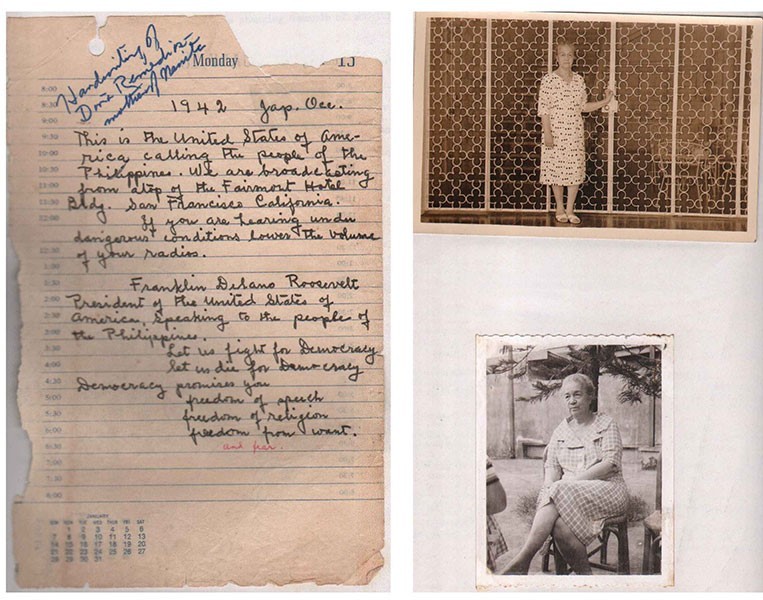 Handwriting of
Dona Remedios
mother of Nenita
Monday
15
8:00
8:30
1942 Jap. Occ.
9:30
This is the United States of Ame-
10:00
rica calling the people of the
10:30
Philippines. We are broadcasting
11:00
from atop of the Fairmont Hotel
11:30
Bldg. San Francisco California.
12:00
If you are hearing under
dangerous conditions lower the volume
of your radios.
1:30
Franklin Delano Roosevelt
2:00
President of the United States of
2:30
America, Speaking to the people of
3:00
the Philippines.
3:30
Let us fight for Democracy
4:00
let us die for Democracy
4:30
Democracy promises you
5:00
freedom of speech
freedom of religion
freedom from want.
and fear.
6:30
8:00
JANUARY
SUN MON TUE WED THUR FRI SAT
1 2 3 4 5 6
7 8 9 10 11 12 13
14 15 16 17 18 19 20
21 22 23 24 25 26 27
28 29 30 31